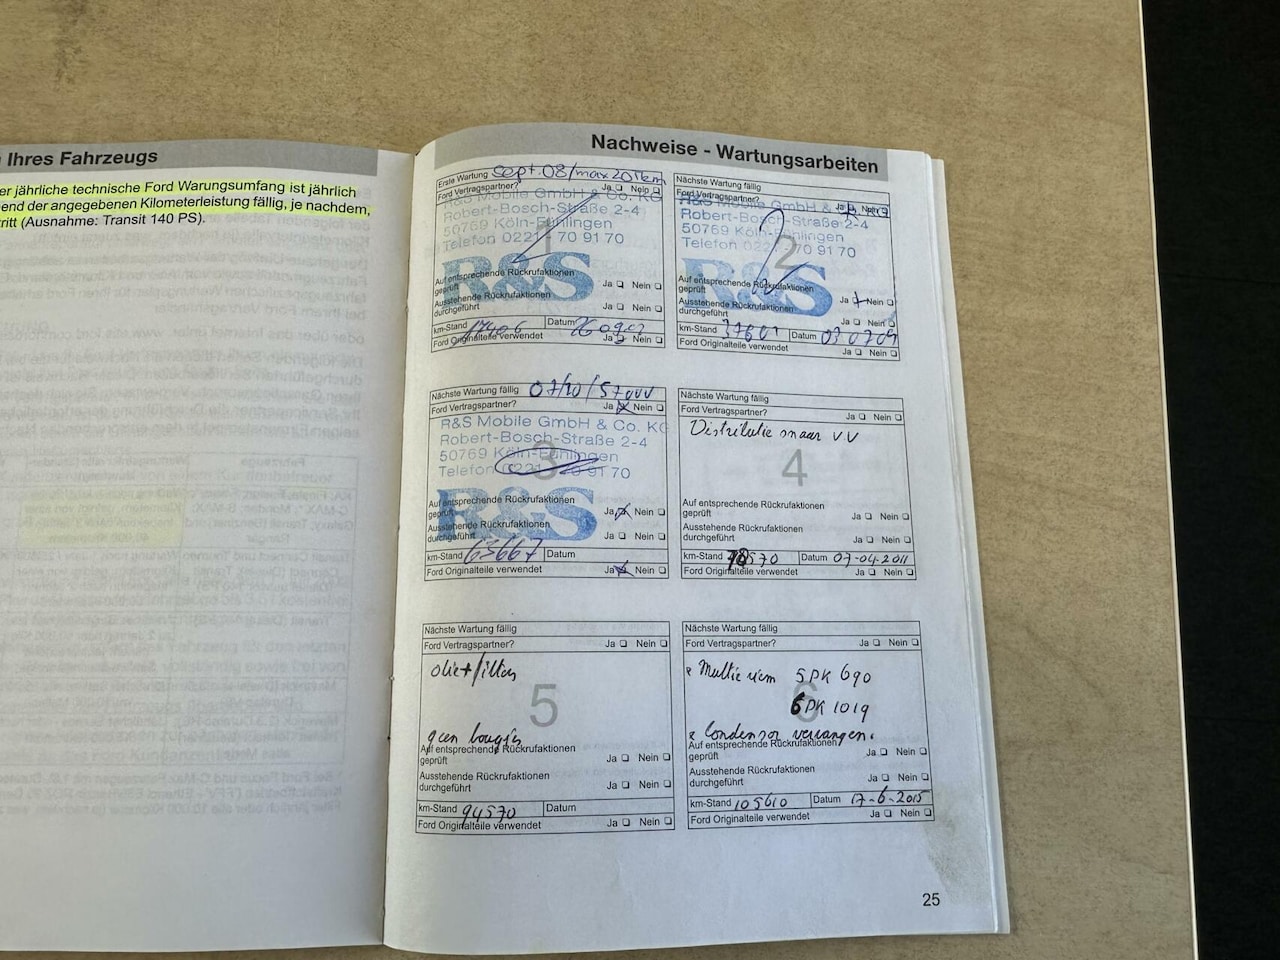 Ihres Fahrzeugs
er jährliche technische Ford Warungsumfang ist jährlich
end der angegebenen Kilometerleistung fällig, je nachdem,
ritt (Ausnahme: Transit 140 PS).
Nachweise - Wartungsarbeiten
Erste Wartung Sept.08/max 20Tkm
Ford Vertragspartner? Ja Nein
R&S Mobile GmbH & Co. KG
Robert-Bosch-Straße 2-4
50769 Köln-Fühlingen
Telefon 0221 70 91 70
1
R&S
Auf entsprechende Rückrufaktionen
geprüft Ja Nein
Ausstehende Rückrufaktionen
durchgeführt Ja Nein
km-Stand 17406 Datum
Ford Originalteile verwendet Ja Nein
Nächste Wartung fällig
Ford Vertragspartner? Ja Nein
R&S Mobile GmbH &
Robert-Bosch-Straße 2-4
50769 Köln-Fühlingen
Telefon 0221 70 91 70
2
R&S
Auf entsprechende Rückrufaktionen
geprüft Ja Nein
Ausstehende Rückrufaktionen
durchgeführt Ja Nein
km-Stand 37601 Datum 03 07 09
Ford Originalteile verwendet Ja Nein
Nächste Wartung fällig 07/10/57000
Ford Vertragspartner? Ja Nein
R&S Mobile GmbH & Co. KG
Robert-Bosch-Straße 2-4
50769 Köln-Fühlingen
Telefon 0221 70 91 70
3
R&S
Auf entsprechende Rückrufaktionen
geprüft Ja Nein
Ausstehende Rückrufaktionen
durchgeführt Ja Nein
km-Stand 63667 Datum
Ford Originalteile verwendet Ja Nein
Nächste Wartung fällig
Ford Vertragspartner? Ja Nein
Distributie snaar V.V
4
Auf entsprechende Rückrufaktionen
geprüft Ja Nein
Ausstehende Rückrufaktionen
durchgeführt Ja Nein
km-Stand Datum 07-04-2011
Ford Originalteile verwendet Ja Nein
Nächste Wartung fällig
Ford Vertragspartner? Ja Nein
olie+filters
5
geen bougies
Auf entsprechende Rückrufaktionen
geprüft Ja Nein
Ausstehende Rückrufaktionen
durchgeführt Ja Nein
km-Stand 94570 Datum
Ford Originalteile verwendet Ja Nein
Nächste Wartung fällig
Ford Vertragspartner? Ja Nein
Multie riem 5PK 690
6PK 1019
6
Condensor vervangen.
Auf entsprechende Rückrufaktionen
geprüft Ja Nein
Ausstehende Rückrufaktionen
durchgeführt Ja Nein
km-Stand 105610 Datum 17-6-2015
Ford Originalteile verwendet Ja Nein
25